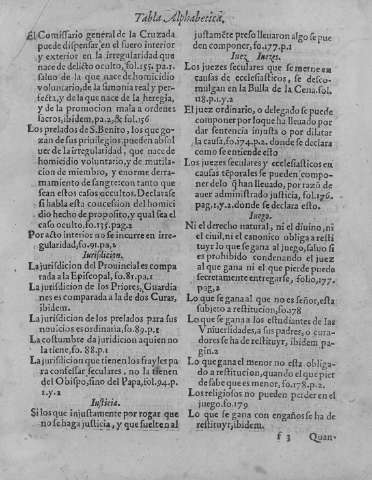 Tabla Alphabetica,
El Comissario general de la Cruzada
puede dispensar, en el fuero interior
y exterior en la irregularidad que
nace de delicto oculto, fol. 155. pa.1.
saluo de la que nace de homicidio
voluntario, de la simonia real y per-
fecta, y de la que nace de la heregia,
y de la promocion mala a ordenes
sacros, ibidem, pa.2, & fol. 156
Los prelados de S. Benito, los que go-
zan de sus priuilegios pueden absol
uer de la irregularidad, que nace de
homicidio voluntario, y de mutila-
cion de miembro, y enorme derra-
mamiento de sangre con tanto que
sean estos casos ocultos. Declarase
si habla esta concession del homici
dio hecho de proposito, y qual sea el
caso oculto, fo. 135. pag.2
Por acto interior no se incurre en irre-
gularidad, fo. 91. pa.2
Iurisdicion.
La jurisdicion del Prouincial es compa
rada a la Episcopal, fo. 81. pa.1
La jurisdicion de los Priores, Guardia
nes es comparada a la de dos Curas,
ibidem.
La jurisdicion de los prelados para sus
nouicios es ordinaria, fo. 89. p.1
La costumbre da jurisdicion aquien no
la tiene, fo. 88. p.1
La jurisdicion que tienen los frayles pa
ra confessar seculares, no la tienen
del Obispo, sino del Papa, fol. 94. p.
1. y.2
Iusticia.
Si los que injustamente por rogar que
no se haga justicia, y que suelten al
justamẽte preso lleuaron algo se pue
den componer, fo. 177. p.1
Iuez Iuezes.
Los juezes seculares que se meten en
causas de ecclesiasticos, se desco-
mulgan en la Bulla de la Cena. fol.
118. p.1. y.2
El juez ordinario, o delegado se puede
componer por lo que ha lleuado por
dar sentencia injusta o por dilatar
la causa, fo. 174. p.2. donde se declara
como se entiende esto
Los juezes seculares y ecclesiasticos en
causas tẽporales se pueden compo-
ner de lo q̃ han lleuado, por razõ de
auer administrado justicia, fol. 176.
pag. 1. y.2. donde se declara esto.
Iuego.
Ni el derecho natural, ni el diuino, ni
el ciuil, ni el canonico obliga a resti
tuyr lo que se gana al juego, saluo si
es prohibido condenando el juez
al que gana ni el que pierde puedo
secretamente entregarse, folio, 177.
pag, 2
Lo que se gana al que no es señor, esta
subjeto a restitucion, fo. 178
Lo que se gana a los estudiantes de las
Vniuersidades, a sus padres, o cura-
dores se ha de restituyr, ibidem pa-
gin. 2
Lo que gana el menor no esta obliga-
do a restitucion, quando el que pier
de sabe que es menor, fo. 178. p.2.
Los religiosos no pueden perder en el
juego. fo. 179
Lo que se gana con engaños se ha de
restituyr, ibidem.
f 3 Quan-